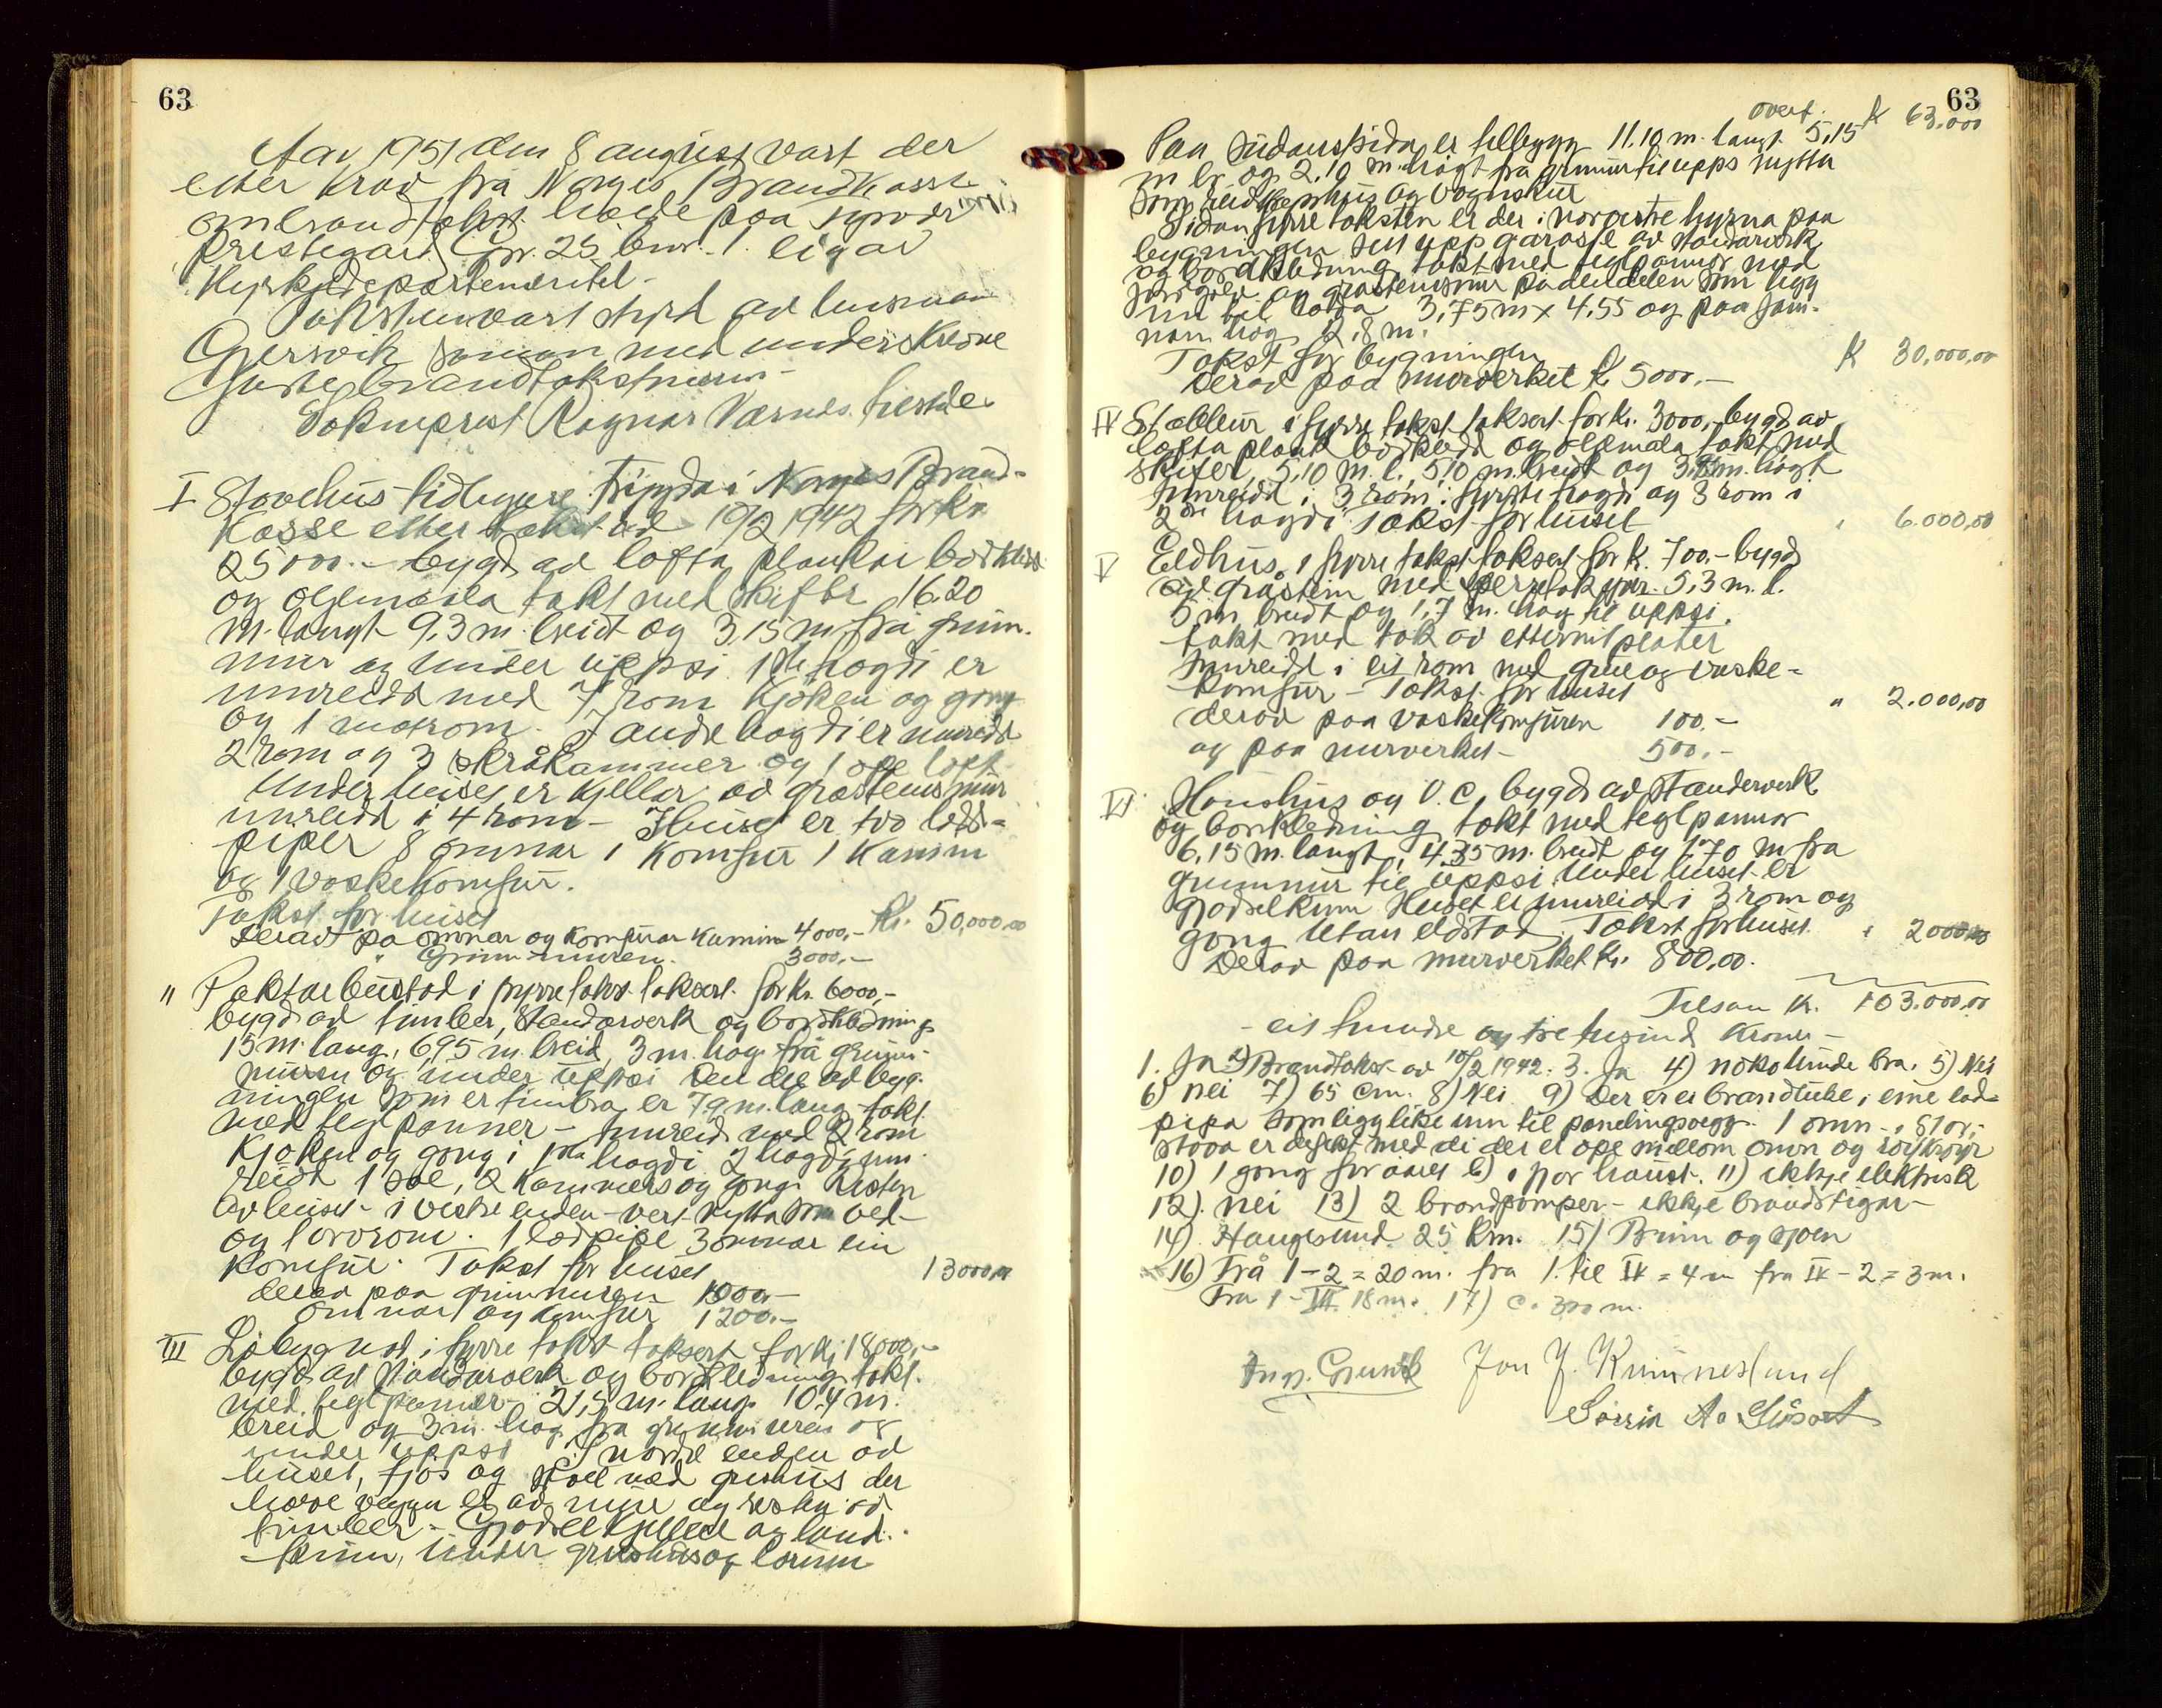 63
Aar 1951 den 8 august vart der
etter krav frå Norges Brandkasse
om brandtakst halde paa
Prestegard Gnr. 25 bnr. 1. eigar
Kyrkjedepartementet.
Taksten vart styrd av lensman
Gjersvik saman med underskrevne
faste brandtakstmenn.
Sokneprest Ragnar Værnes tilstede.
I Stovehus tidlegare trygda i Norges Brand-
kasse etter takst av 10/2 1942 for kr.
25000.- bygd av lofta plankar bordkledd
og oljemåla takt med skifer 16.20
m. langt 9,3 m. breidt og 3,15 m frå grun-
mur og under uppsi. 1ste høgdi er
innreidd med 7 rom kjøken og gong
og 1 matrom. I andre høgdi er innreidd
2 rom og 3 skråkammer og 1 ope loft
Under huset er kjellar av gråsteinsmur
innreidd i 4 rom - I huset er tvo ladd-
piper 8 omnar 1 komfur 1 kamin
og 1 vaskekomfur.
Takst for huset Kr. 50,000,00
Derav på omnar og komfurar kamin 4000,-
" Grunnmuren. 3000,-
" Paktarbustad i fyrre takst taksert for kr. 6000,-
bygd av timber, standarverk og bordkledning
15 m. lang, 6,95 m. breid, 3 m. høg frå grunn-
muren og under uppsi Den del av byg-
ningen som er timbra er 7,9 m. lang takt
med teglpanner - innreid med 2 rom
Kjøken og gong i 1ste høgdi 2 høgdi inn-
reidt 1 sal, 2 kammers og gong. Resten
av huset - i vestre enden - vert nytta som ved-
og torvrom. 1 ladpipe 3 omnar ein
Komfur. Takst for huset 13000,00
derav paa grunnmuren 1000,-
omnar og komfur 1200.-
III Løbygnad i fyrre takst taksert for kr. 18000,-
bygd av standarverk og bordkledning takt.
med teglpanner 21,5 m. lang 10,4 m.
breid og 3 m. høg fra grunnmuren og
under uppsi I nordre enden av
huset, fjøs og stall med grishus der
halve veggen er av mur og resten av
timber - Gjødselkjellar og land-
kum, under grishus og lorum
63
overf. k 63.000
Paa sudaustsida er tilbygg 11.10 m. langt 5,15
m br. og 2,10 m. høgt frå grunnmur til upps nytta
som reidskapshus og vognskur
Sidan fyrre taksten er der i norvestre hyrna paa
bygningen sett upp garasje av standarverk
og bordkledning takt med teglpannor med
jordgolv og gråsteinsmur på den delen som ligg
inn til løda 3,75 m x 4.55 og paa jam-
nan høg 2,8 m.
Takst for bygningen k 30,000,00
Derav paa murverket k. 5000.-
IV Stabbur i fyrre takst taksert for kr. 3000,- bygd av
lofta plank bordkledd og oljemåla takt med
skifer, 5,10 m. l, 5,10 m. breidt og m. høgt
innreidd i 3 rom i fyrste høgdi og 3 rom i
2dre høgdi Takst for huset " 6.000,00
V Eldhus i fyrre takst taksert for k. 700.- bygd
av gråstein med sperretak yver. 5,3 m. l.
5 m. breidt og 1,7 m. høg til uppsi.
takt med tak av etternitplater
Innreidd i eit rom med grue og vaske-
komfur - Takst for huset " 2.000,00
derav paa vaskekomfuren 100.-
og paa murverket - 500,-
VI Hønshus og V.C. bygd av standerverk
og bordkledning takt med teglpannor
6,15 m. langt, 4.35 m. breidt og 1.70 m fra
grunnmur til uppsi. Under huset er
gjødselkum Huset er innreidd i 3 rom og
gong utan eldstad. Takst for huset " 2000,00
Derav paa murverket kr. 800,00.
Tilsam kr. 103.000,00
- eit hundre og tre tusind kroner -
1. Ja 2) Brandtakst av 10/2 1942. 3. Ja 4) noko lunde bra. 5) Nei
6) nei 7) 65 cm. 8) Nei 9) Der er ei brandluke i eine lad-
pipa som ligg like inn til panelingsvegg. 1 omn i stor-
stova er defekt med di der er ope millom omn og røykrøyr
10) 1 gong for aaret b) 1 por haust. 11) ikkje elektrisk
12). nei 13) 2 brandpomper - ikkje brandstigar -
14) Haugesund 25 km. 15) Brunn og sjøen
16) Frå 1 - 2 = 20 m. fra 1. til IV = 4 m fra IV - 2 = 3 m.
Fra 1 - III. 18 m. 17) c. 300 m.
Jon J.